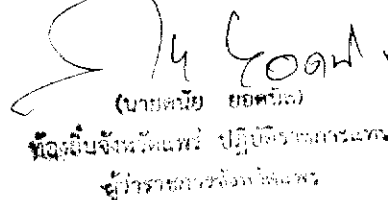 (นายดนัย ยอดนิล)
ท้องถิ่นจังหวัดแพร่ ปฏิบัติราชการแทน
ผู้ว่าราชการจังหวัดแพร่